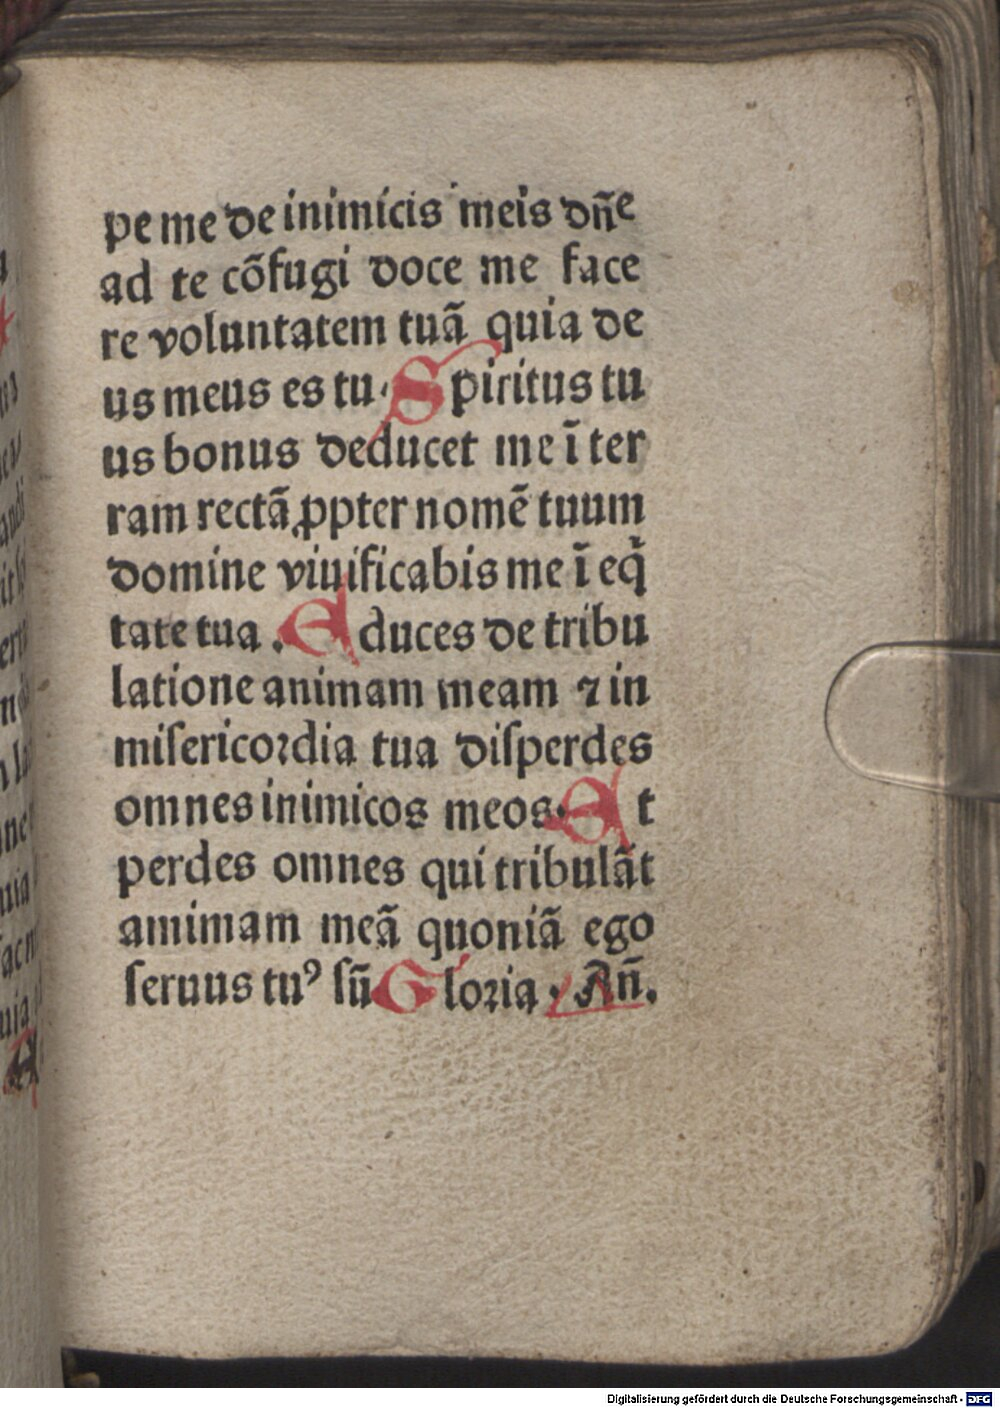 pe me de inimicis meis dñe
ad te cõfugi doce me face
re voluntatem tuã quia de
us meus es tu. Spiritus tu
us bonus deducet me ĩ ter
ram rectã ꝓpter nomẽ tuum
domine viuificabis me ĩ eq̃
tate tua. Educes de tribu
latione animam meam ⁊ in
miſericoꝛdia tua diſperdes
omnes inimicos meos. Et
perdes omnes qui tribulãt
amimam meã quoniã ego
ſeruus tuꝰ ſũ Gloꝛia. Añ.
Digitalisierung gefördert durch die Deutsche Forschungsgemeinschaft - DFG